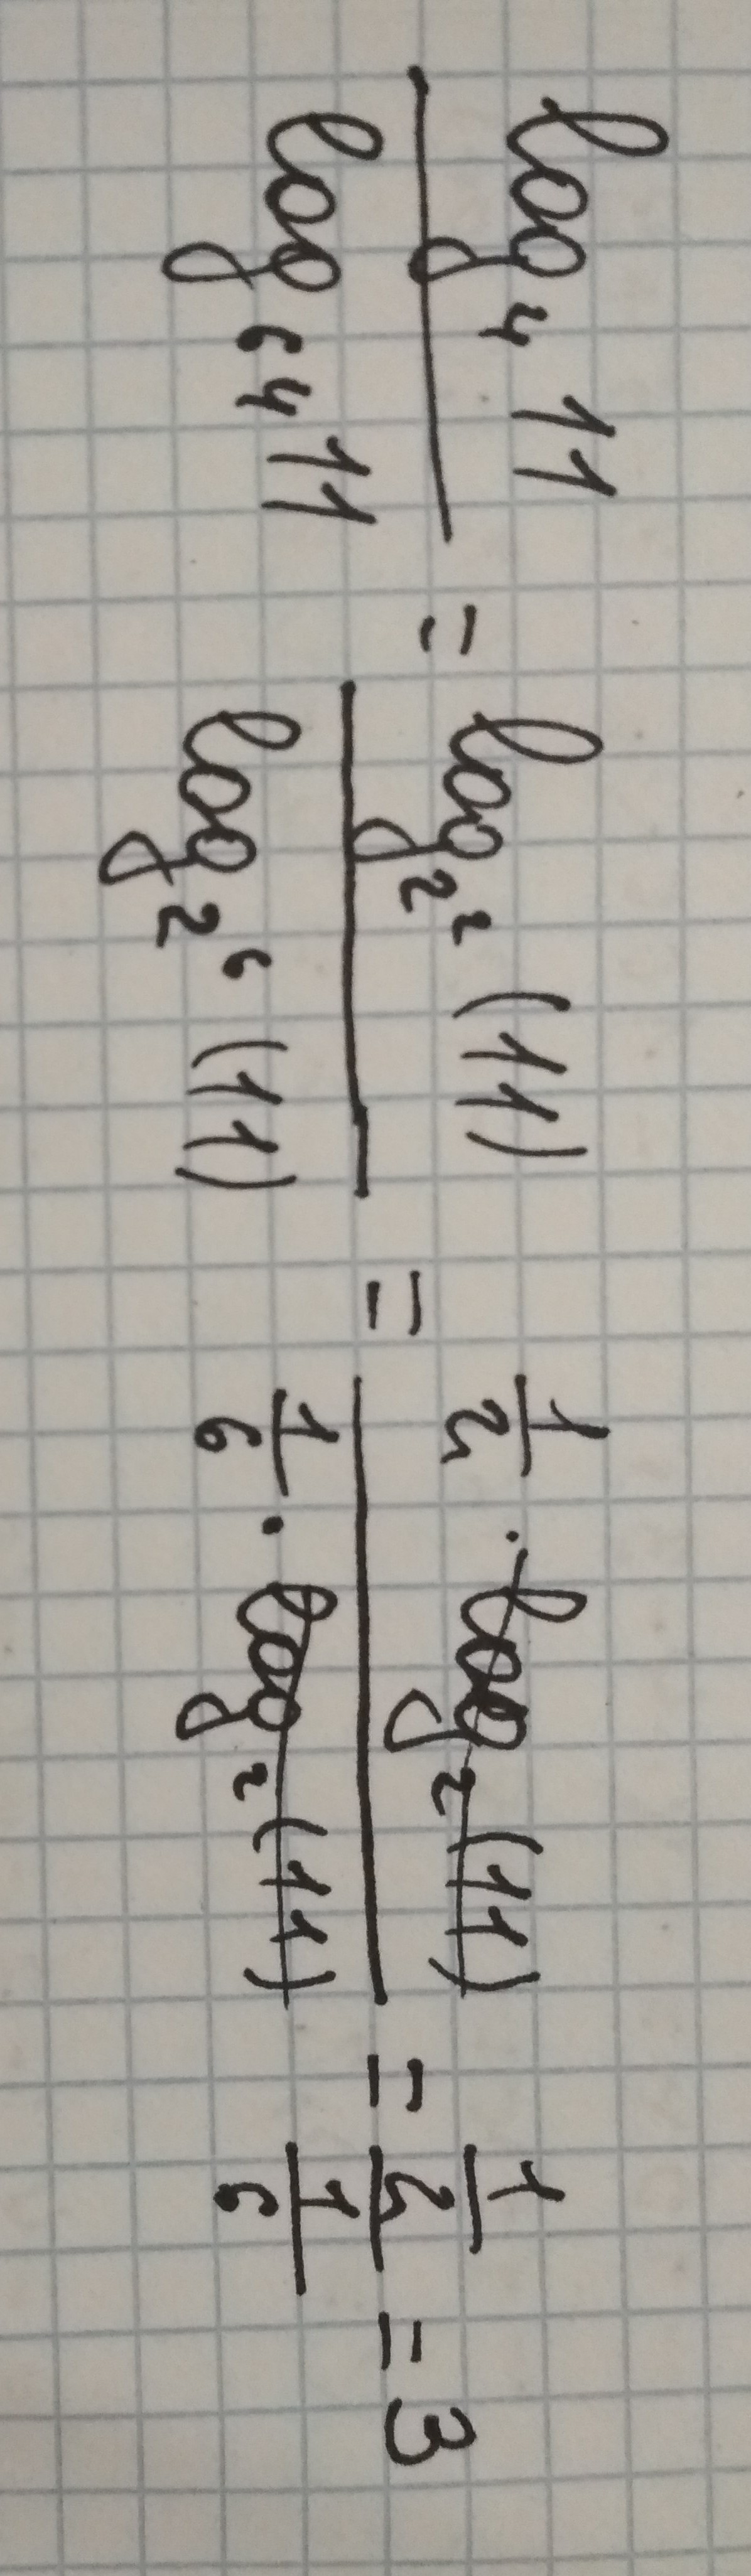 \frac{\log_4 11}{\log_{64} 11} = \frac{\log_{2^2}(11)}{\log_{2^6}(11)} = \frac{\frac{1}{2} \cdot \log_2(11)}{\frac{1}{6} \cdot \log_2(11)} = \frac{\frac{1}{2}}{\frac{1}{6}} = 3